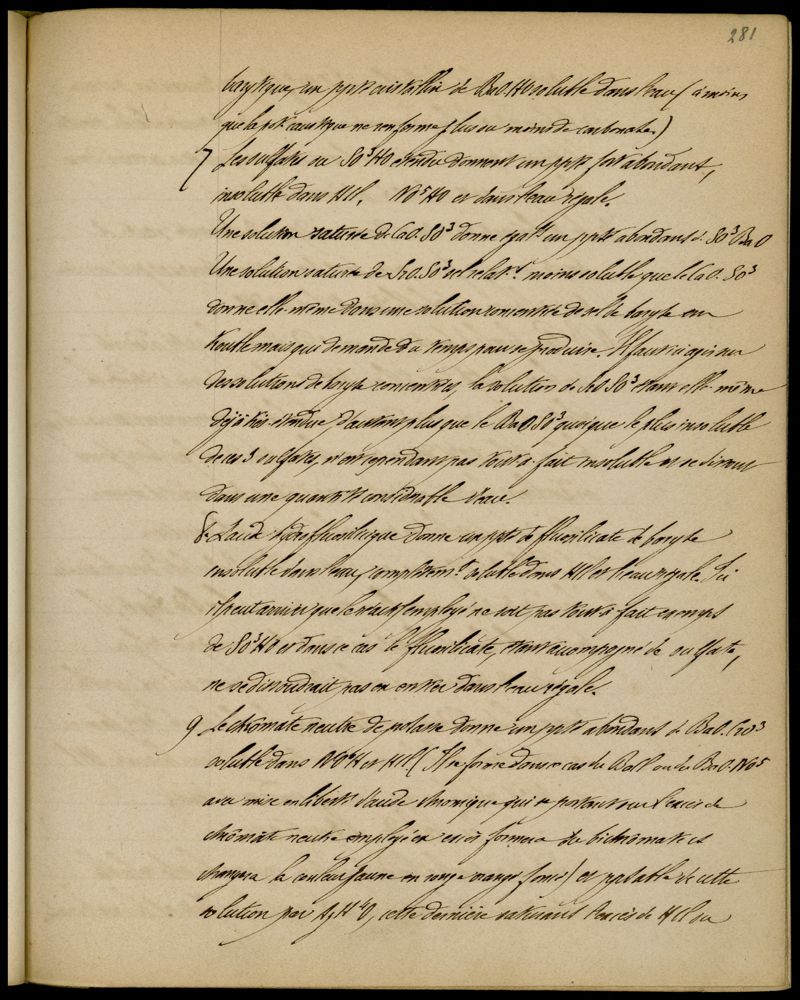 281
barytique, un ppté cristallin de BaO.HO soluble dans l'eau (à moins
que la pot. caustique ne renferme plus ou moins de carbonate.)
7 Les sulfates ou SO³HO étendu donnent un ppté fort abondant,
insoluble dans HCl, NO⁵HO et dans l'eau régale.
Une solution saturée de CaO.SO³ donne égalt un ppté abondant de SO³BaO
Une solution saturée de SrO.SO³ sel relatt moins soluble que le CaO.SO³
donne elle-même dans une solution concentrée de sel de baryte un
trouble mais qui demande du temps pour se produire. Il faut ici agir sur
des solutions de baryte concentrées, la solution de SrO SO³ étant elle-même
déjà très étendue, d'autant plus que le BaO SO³ quoique le plus insoluble
de ces 3 sulfates, n'est cependant pas tout à fait insoluble et se dissout
dans une quantité considérable d'eau.
8. L'acide hydrofluosilicique donne un ppté de fluosilicate de baryte
insoluble dans l'eau, complètemt soluble dans HCl et l'eau régale. Ici
il peut arriver que le réactif employé ne soit pas tout à fait exempt
de SO³HO et dans ce cas le fluosilicate, étant accompagné de sulfate,
ne se dissoudrait pas en entier dans l'eau régale.
9 Le chromate neutre de potasse donne un ppté abondant de BaO.CrO³
soluble dans NO⁵H et HCl (Il se forme dans ce cas du BaCl ou du BaO.NO⁵
avec mise en liberté d'acide chromique qui se portant sur l'excès de
chromate neutre employé en excès formera du bichromate et
changera la couleur jaune en rouge orangé foncé) et pptable de cette
solution par AzH⁴O, cette dernière saturant l'excès de HCl ou